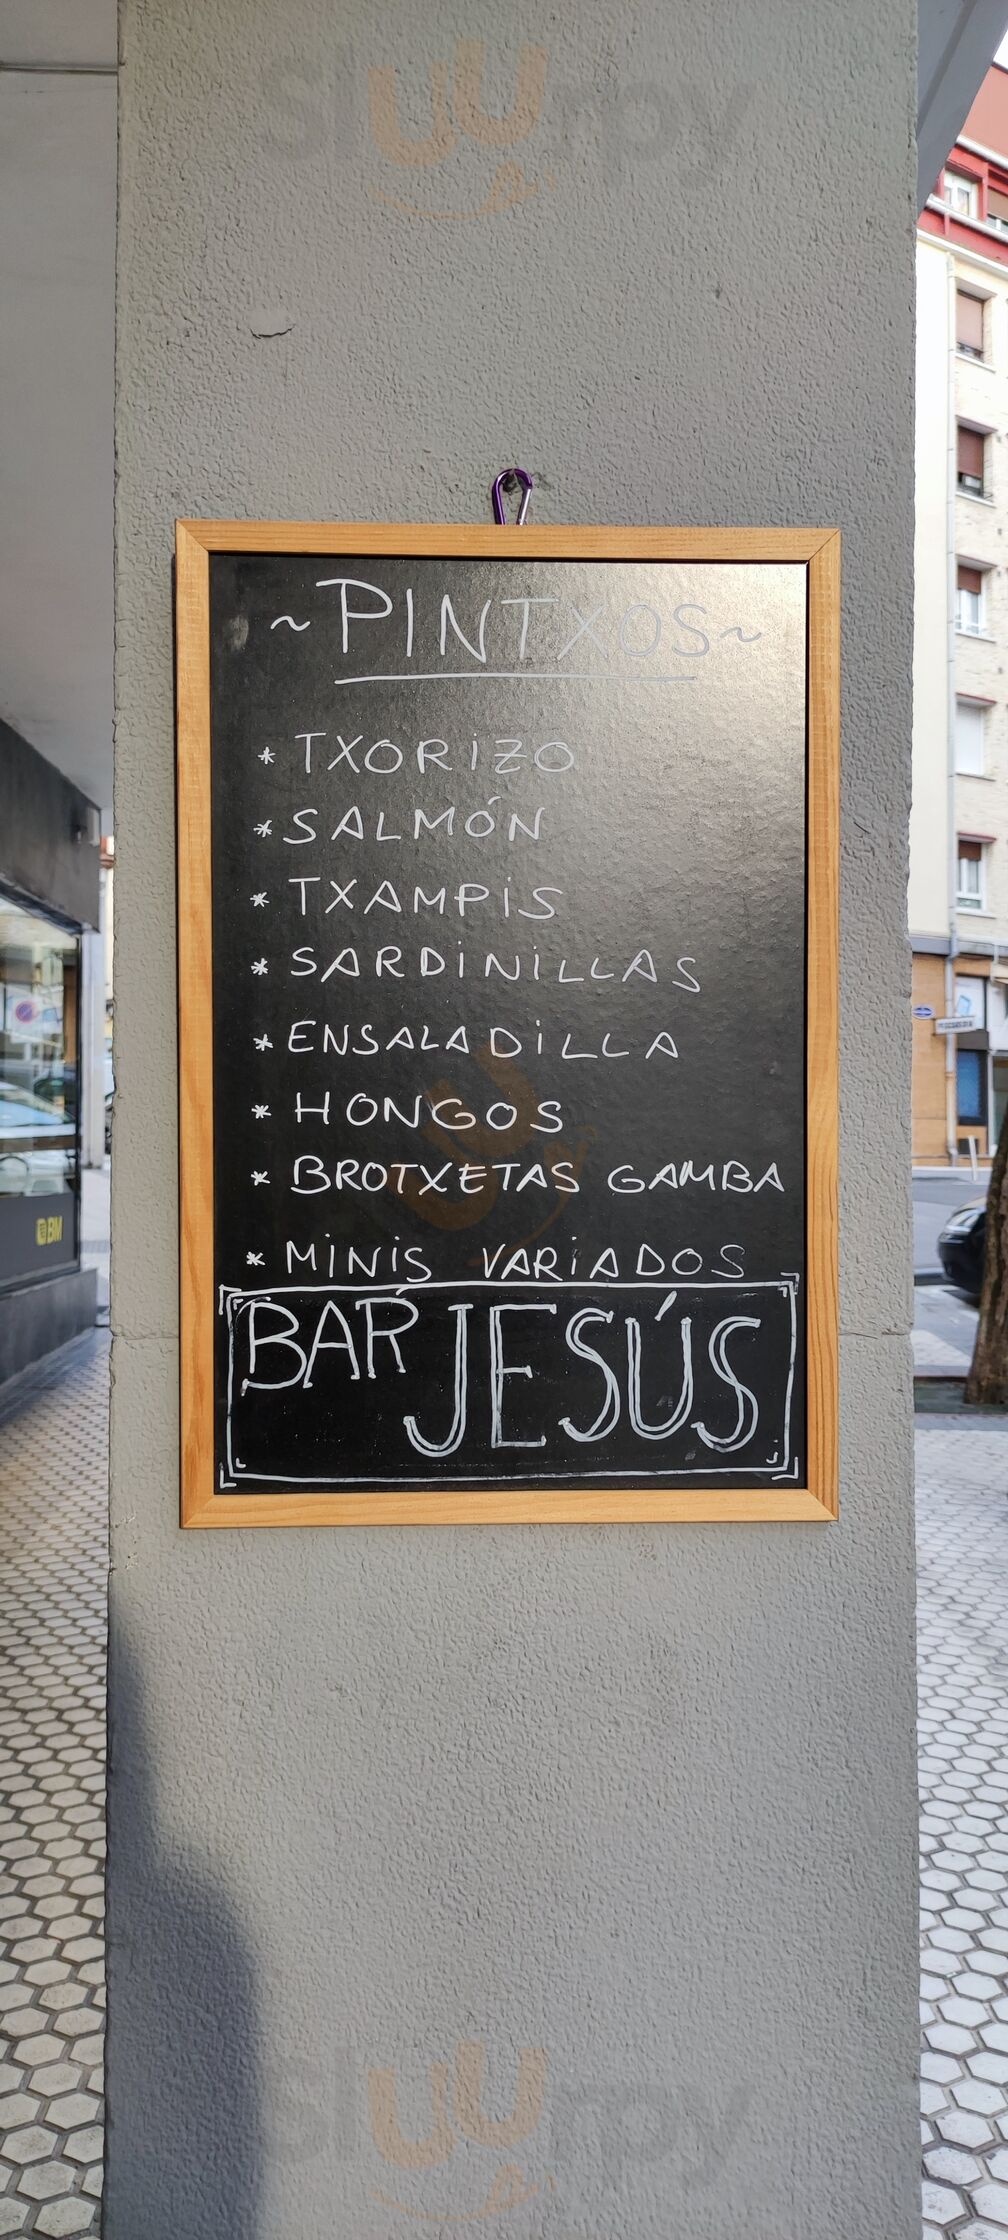 sluurpy
~PINTXOS~
* TXORIZO
* SALMÓN
* TXAMPIS
* SARDINILLAS
* ENSALADILLA
* HONGOS
* BROTXETAS GAMBA
* MINIS VARIADOS
BAR JESÚS
BM
sluurpy